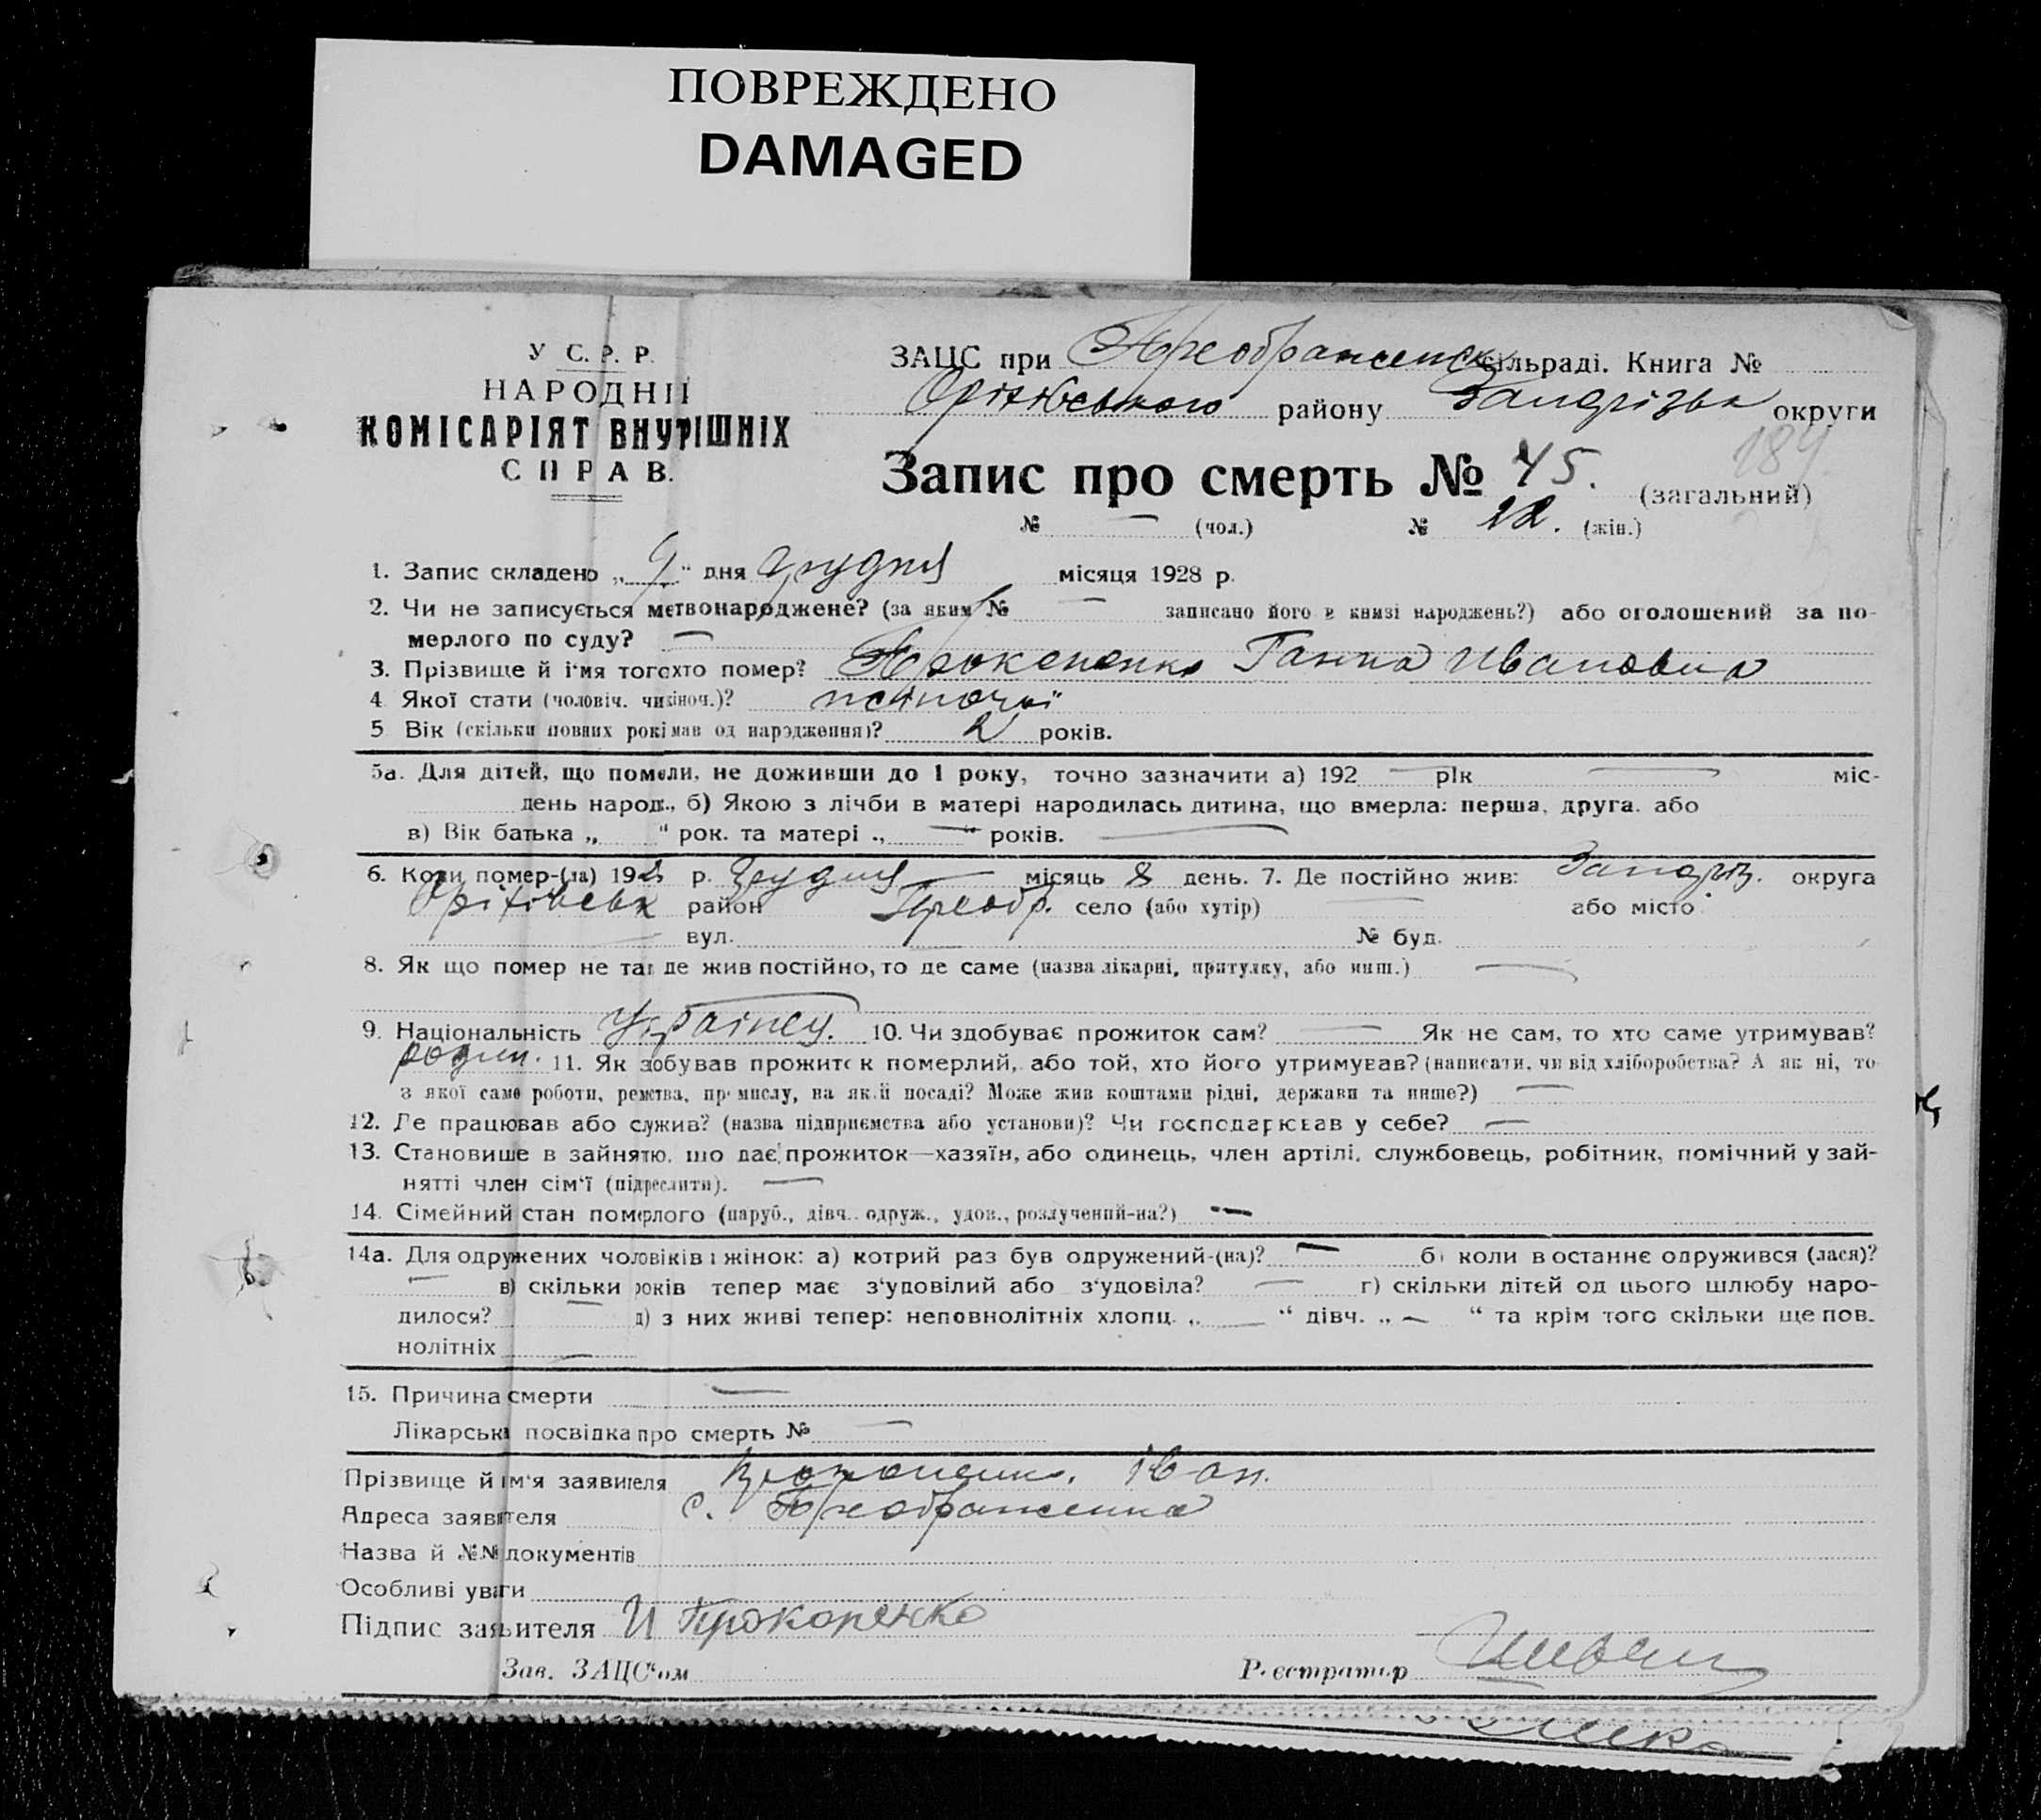 ПОВРЕЖДЕНО
DAMAGED
У С. Р. Р.
НАРОДНІЙ
КОМІСАРІЯТ ВНУТРІШНІХ
СПРАВ.
ЗАЦС при Преображенськ сільраді. Книга №
Оріхівського району Запорізьк округи
184
Запис про смерть № 45. (загальний)
№ — (чол.) № 22. (жін.)
1. Запис складено „ 9 " дня Грудня місяця 1928 р.
2. Чи не записується мертвонароджене? (за яким № — записано його в книзі народжень?) або оголошений за по-
мерлого по суду? —
3. Прізвище й ім'я того хто помер? Прокопенко Ганна Ивановна
4 Якої стати (чоловіч. чи жіноч.)? жіночої
5 Вік (скільки повних років мав од народження)? 2 років.
5а. Для дітей, що померли, не доживши до 1 року, точно зазначити а) 192 — рік — міс-
день народж., б) Якою з лічби в матері народилась дитина, що вмерла: перша, друга. або
в) Вік батька „ " рок. та матері „ — " років. —
6. Коли помер-(ла) 1928 р. Грудня місяць 8 день. 7. Де постійно жив: Запоріз. округа
Оріхівськ район Преобр. село (або хутір) — або місто
— вул. — № буд.
8. Як що помер не там де жив постійно, то де саме (назва лікарні, притулку, або инш.) —
9. Національність Українец. 10. Чи здобував прожиток сам? — Як не сам, то хто саме утримував?
родит. 11. Як здобував прожиток померлий, або той, хто його утримував? (написати, чи від хліборобства? А як ні, то
з якої саме роботи, ремества, промислу, на якій посаді? Може жив коштами рідні, держави та инше?) —
12. Де працював або служив? (назва підприємства або установи)? Чи господарював у себе? —
13. Становище в зайнятю, що дає прожиток—хазяїн, або одинець, член артілі, службовець, робітник, помічний у зай-
нятті член сім'ї (підреслити). —
14. Сімейний стан померлого (паруб., дівч. одруж., удов., розлучений-на?) —
14а. Для одружених чоловіків і жінок: а) котрий раз був одружений-(на)? — б) коли востаннє одружився (лася)?
— в) скільки років тепер має з'удовілий або з'удовіла? — г) скільки дітей од цього шлюбу наро-
дилося? — д) з них живі тепер: неповнолітніх хлопц. „ — " дівч. „ — " та крім того скільки ще пов.
нолітніх —
15. Причина смерти —
Лікарська посвідка про смерть № —
Прізвище й ім'я заявителя Прокопенко. Іван.
Адреса заявителя с. Преображенка
Назва й №№ документів
Особливі уваги
Підпис заявителя И Прокопенко
Зав. ЗАЦС'ом Реєстратор